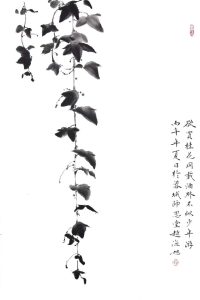 欲買桂花同載酒終不似少年游
丙午年夏日於蓉城師思堂趙